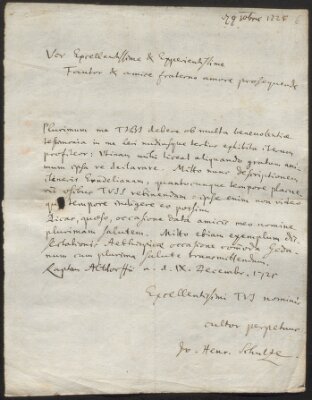 Vir Excellentissime & Experientissime
Fautor & amice fraterno amore prosequende
Plurimum me TIBI debere ob multa benevolentiæ
testimonia in me leviter exhibita iterum
profiteor; Utinam mihi liceat aliquando gratum ani-
mum ipsa re declarare. Mitto nunc descriptionem
itineris quantocunque tempore placue-
rit usibus TUIS retinendam; ipse enim non video
quo tempore indigere ea possim.
Dicas, quæso, occasione data amicis meo nomine
plurimam salutem. Mitto etiam exemplum dis-
sertationis occasione commoda Geda-
num cum plurima salute transmittendum.
Altorffii a. d. IX. Decembr. 1725
Excellentissimi TUI nominis
cultor perpetuus
Jo. Henr. Schulze